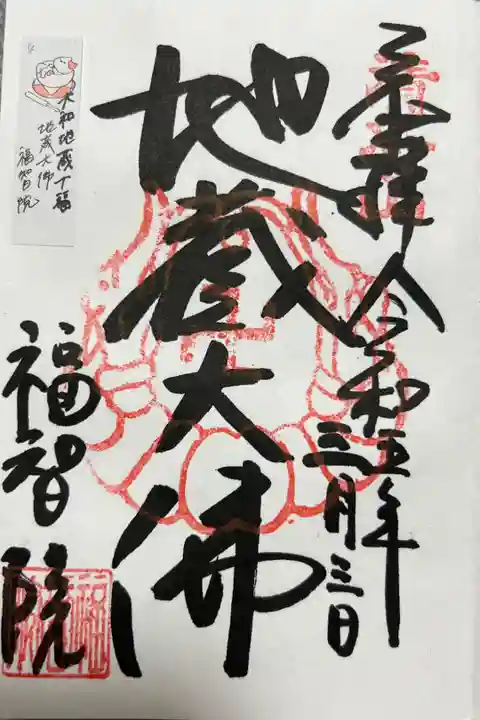 奉拝 令和五年
三月三日
地蔵大佛
福智院
大和地蔵十福
地蔵大佛
福智院